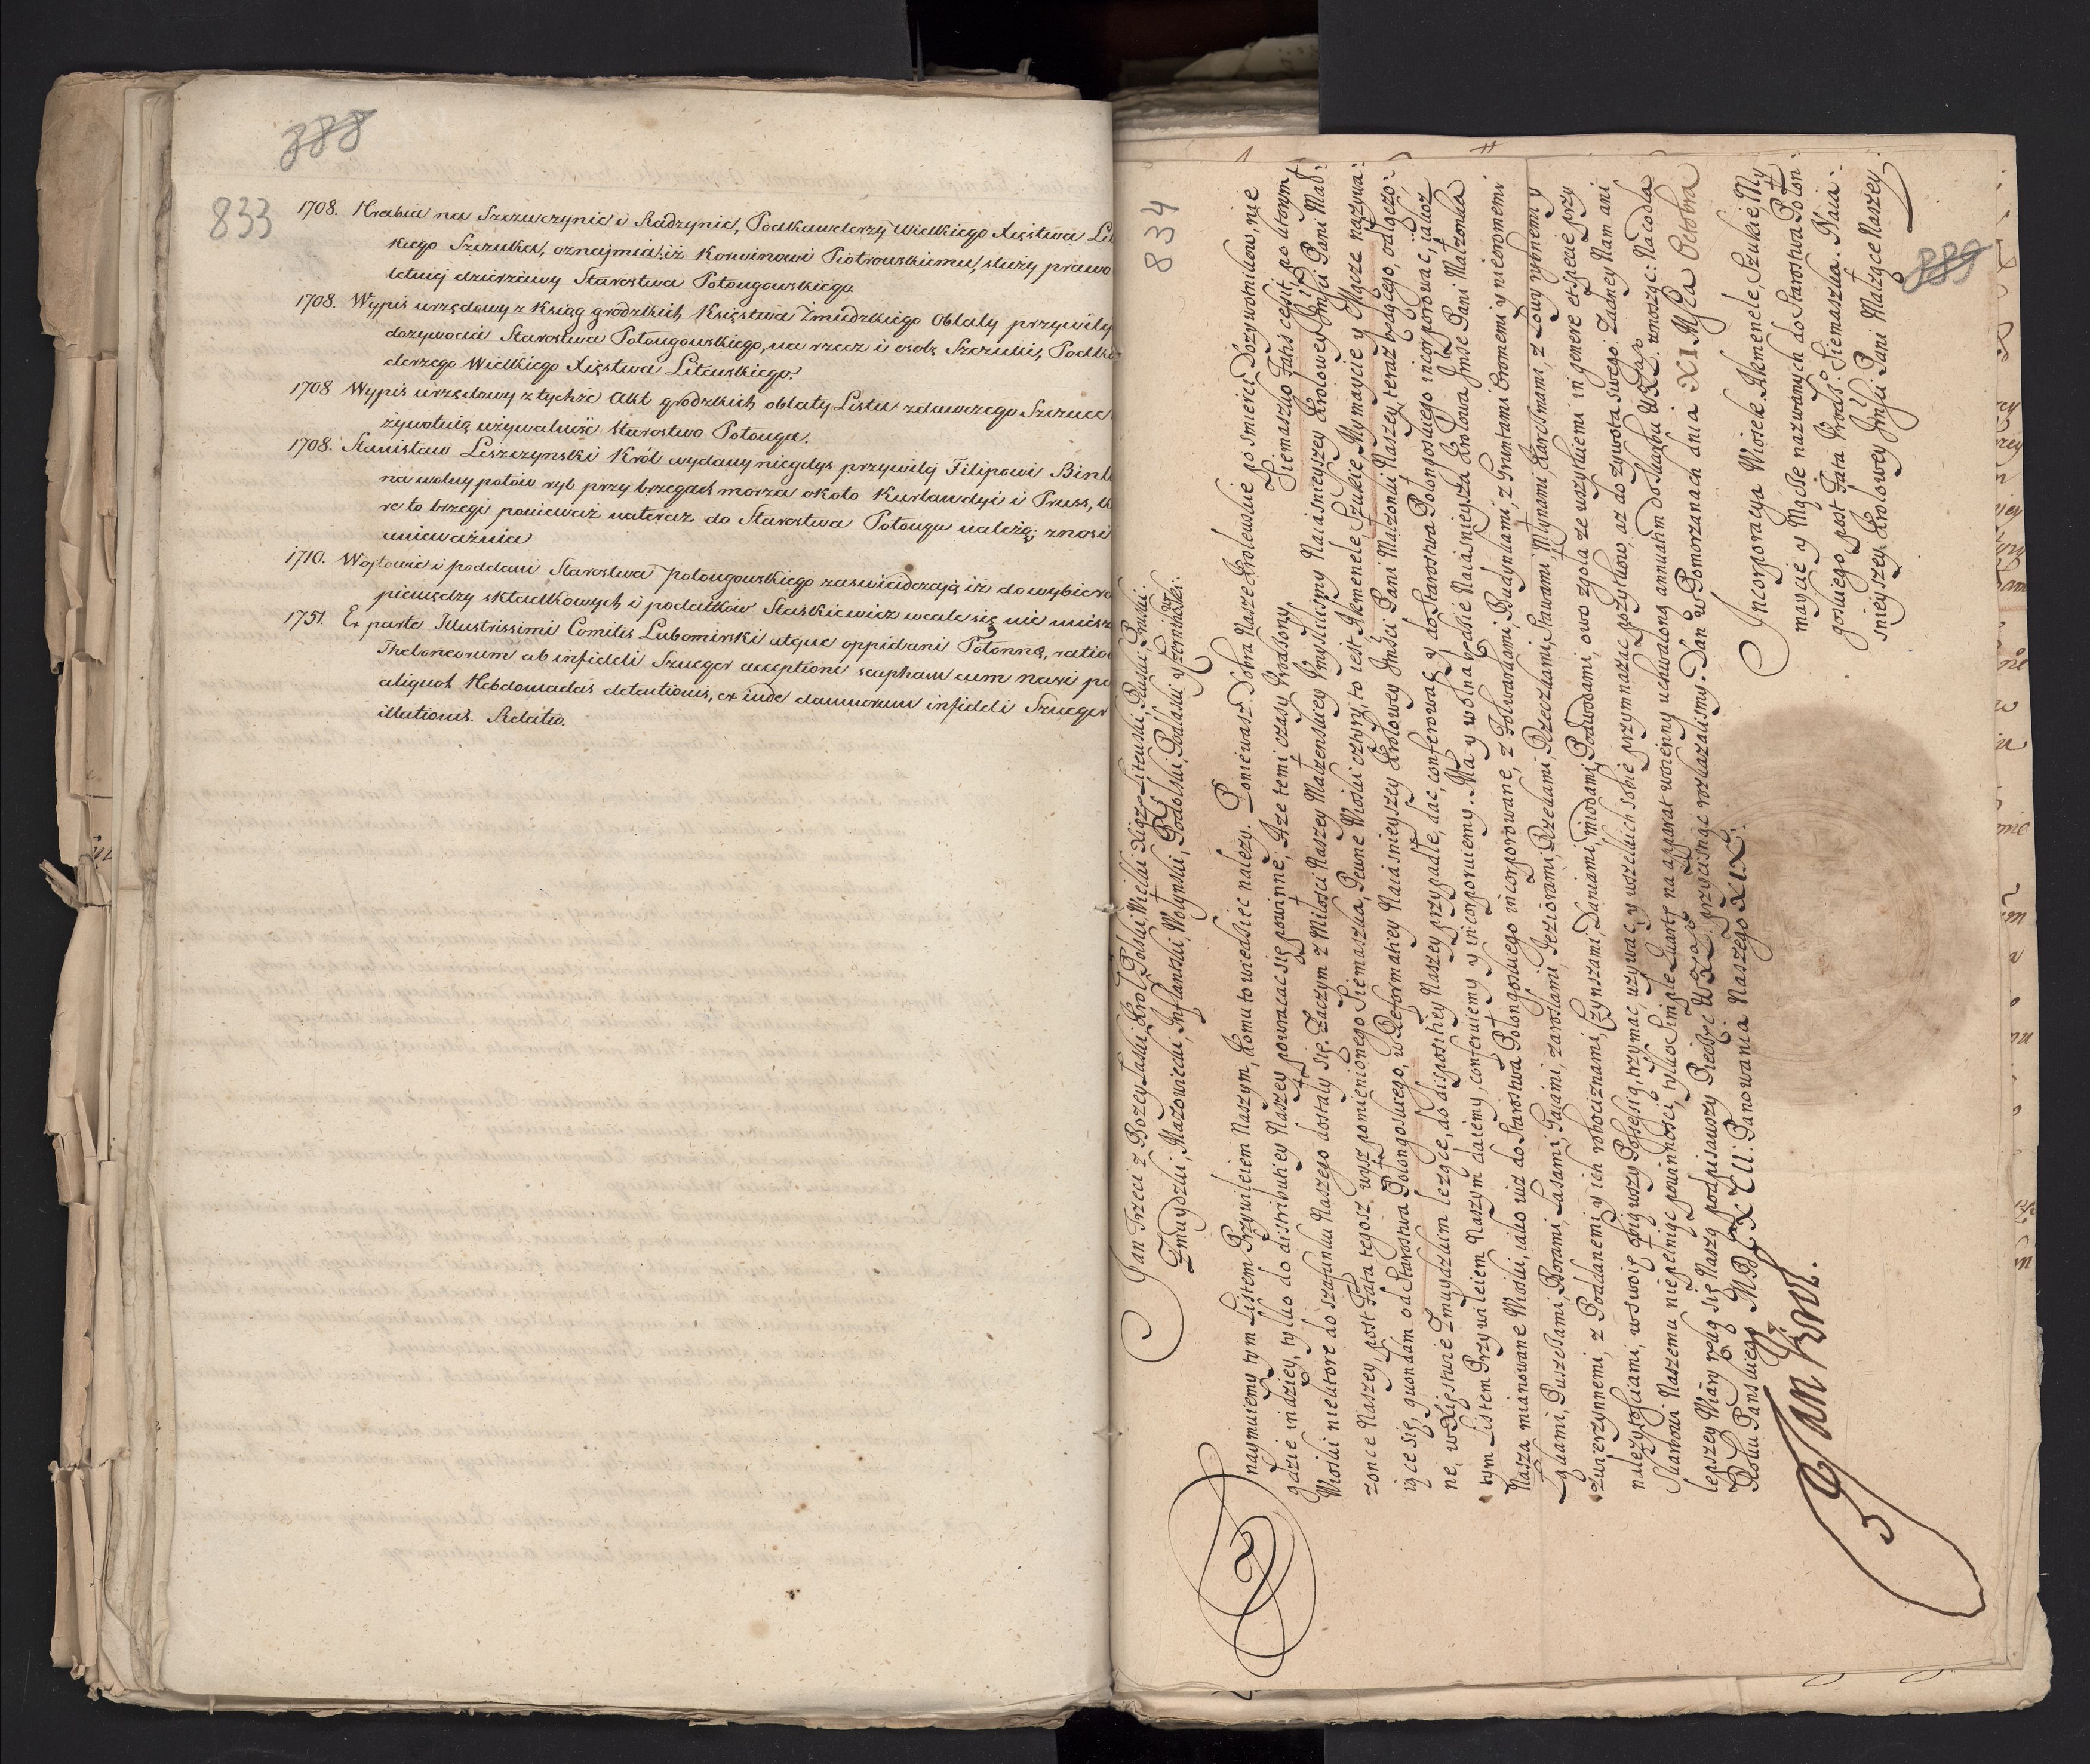 888
833
1708. Hrabia na Szczuczynie i Radzynie, Podkanclerzy Wielkiego Xięstwa Li
kiego Szczuka, oznajmia, iż Korwinowi Piotrowskiemu, służy prawo
letniej dzierżawy Starostwa Połongowskiego.
1708. Wypis urzędowy z Ksiąg grodzkich Księstwa Żmudzkiego Oblaty przywilej
dożywocia Starostwa Połongowskiego, na rzecz i osobę Szczuki, Podka
clerzego Wielkiego Xięstwa Litewskiego.
1708 Wypis urzędowy z tychże Akt grodzkich oblaty Listu zdawczego Szczuce
żywotnią używalność Starostwo Połonga.
1708. Stanisław Leszczynski Król wydany niegdys przywilej Filipowi Bink
na wolny połów ryb przy brzegach morza około Kurlandyi i Pruss, k
re to brzegi ponieważ nateraz do Starostwa Połonga należą; znosi
unieważnia
1710. Wojtowie i poddani Starostwa Połongowskiego zaswiadczają iż do wybiera
pieniędzy składkowych i podatków Staskiewicz wcale się nie miesz
1751. Ex parte Illustrissimi Comitis Lubomirski atque oppidani Połonnę, ratio
Theloneorum ab infideli Szueger acceptioni scapham cum navi pe
aliquot Hebdomadas detentionis, ex inde damnorum infideli Szueger
illationis. Relatio.
834
Jan Trzeci z Bozey Łaski, Krol Polski, Wielki Xiąze Litewski, Ruski, Pruski,
Zmuydzki, Mazowiecki, Inflantski, Wołynski, Podolski, Podlaski y Czerniho:
naymuiemy tym Listem Przywileiem Naszym, komu to wiedziec nalezy. Poniewasz Dobra Nasze Krolewskie po smierci Dozywotnikow, nie
gdzie indziey, tylko do distributiey Naszey powracac się powinne; A ze temi czasy Wrodzony Siemaszko Fatis cessit, po ktorym
Wioski niektore do szafunku Naszego dostały się. Zaczym z Miłosci Naszey Małzenskiey Umyslilismy Naiasnieyszey Krolowey Imsci Pani Mał:
zonce Naszey, post Fata tegosz wysz pomienionego Siemaszka, Pewne Wioski cztyry, to iest Akmenele, Szukie, Mymaycie y Mącze nazywa:
iące się, quondam od Starostwa Połongoskiego, w Reformatiey Naiasnieyszey Krolowey Imsci Pani Małzonki Naszey, teraz będącego, odłączo:
ne, w Xięstwie Zmuydzkim lezące, do dispositiey Naszey przypadłe, dac, conferowac, y do Starostwa Połongoskiego incorporowac, iakosz
tym Listem Przywileiem Naszym daiemy, conferuiemy y incorporuiemy. Ma y wolna będzie Naiasnieysza Krolowa Jmsc Pani Małzonka
Nasza mianowane Wioski, iako iuż do Starostwa Połongoskiego incorporowane, z Folwarkami, Budynkami, z Gruntami oromemi y nieoromemi
Łąkami, Puszczami, Borami, Lasami, Gaiami, zaroslami, Jeziorami, Rzekami, Rzeczkami, Stawami, Młynami, Karczmami, z Łowy rybnemi y
zwierzynnemi, z Poddanemi y ich robociznami, Czynszami, Daniami, miodami, Podwodami, owo zgoła ze wszytkiemi in genere et specie przy
nalezytosciami, w swoię obiąwszy Possesią, trzymac, uzywac, y wszelkich sobie przymnazac pozytkow, az do zywota swego. Zadney Nam ani
Skarbowi Naszemu nie pełniąc powinnosci, tylko simple kwartę na apparat woienny uchwaloną annuatim do Skarbu WXL. wnosząc: Na co dla
lepszey Wiary ręką się Naszą podpisawszy Pieczęc WXL. przycisnąc rozkazalismy. Dan w Pomorzanach dnia XI Mca Octobra
Roku Panskiego MDCXCII. Panowania Naszego XIX.
Jan Krol.
Incorporacya Wiosek Akmenele, Szukie, My
maycie y Mącze nazwanych do Starostwa Połon
goskiego, post Fata Urodz: Siemaszka. Naia:
snieyszey Krolowey Imsci Pani Małzące Naszey.
889